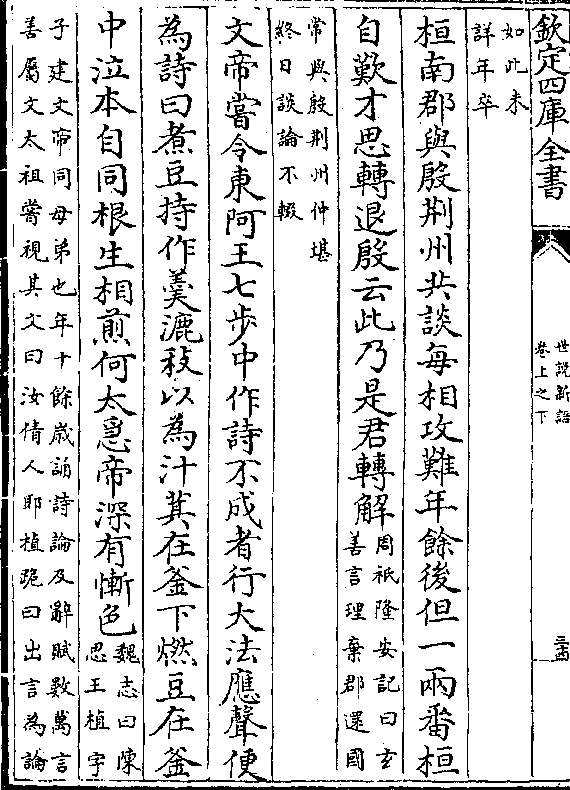 欽定四庫全書
世說新語
卷上之下
三十四
如此未
詳年卒
桓南郡與殷荆州共談每相攻難年餘後但一兩番桓
自歎才思轉退殷云此乃是君轉解
周祇隆安記曰𤣥
善言理棄郡還國
常與殷荆州仲堪
終日談論不輟
文帝嘗令東阿王七步中作詩不成者行大法應聲便
為詩曰煮豆持作羹漉豉以為汁萁在釜下燃豆在釜
中泣本自同根生相煎何太急帝深有慚色
魏志曰陳
思王植字
子建文帝同母弟也年十餘歲誦詩論及辭賦數萬言
善屬文太祖嘗視其文曰汝倩人耶植跪曰出言為論